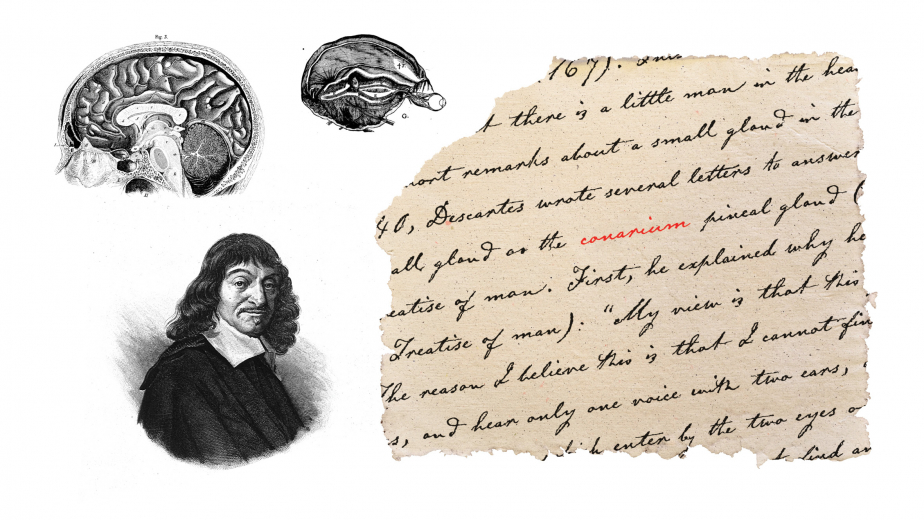 Fig. 2.
167). This
t there is a little man in the hea
hort remarks about a small gland in the
40, Descartes wrote several letters to answer
all gland as the conarium pineal gland (
eatise of man. First, he explained why he
Treatise of man): "My view is that this
The reason I believe this is that I cannot fin
s, and hear only one voice with two ears,
which enter by the two eyes o
t find an